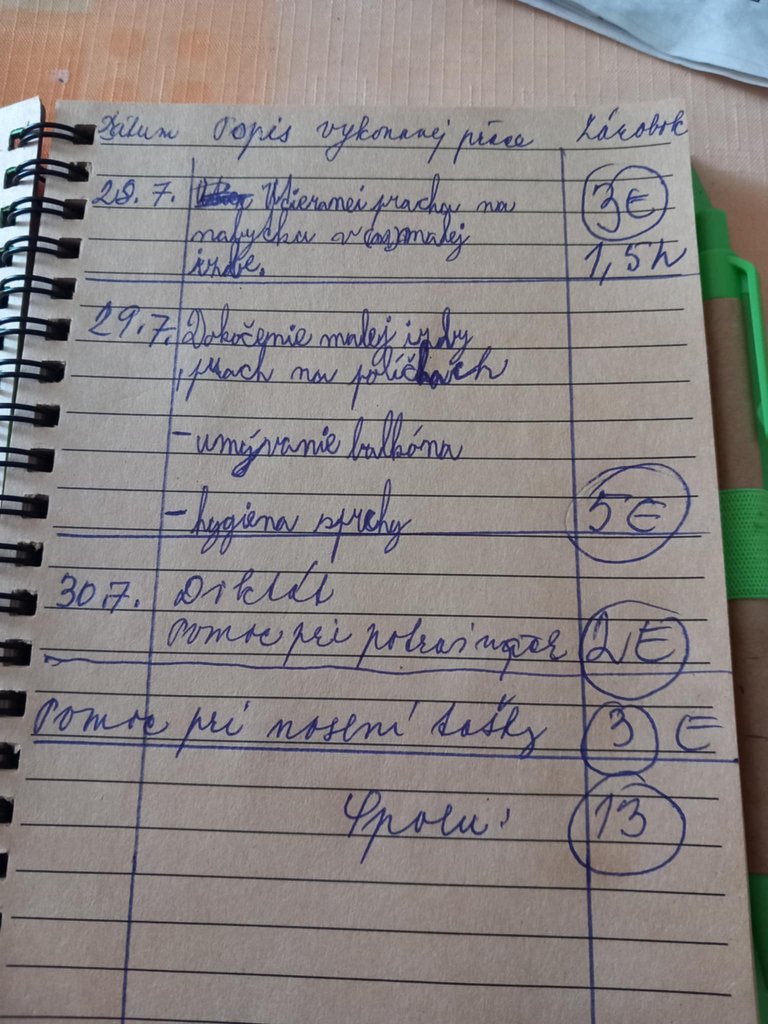 Dátum Popis vykonanej práce Zárobok
28.7. Utieranei prachu na 3€
nabytku v malej
izbe. 1,5h
29.7. Dokočenie malej izby
, prach na poličkach
- umývanie balkóna
- hygiena sprchy 5€
30.7. Diktát
Pomoc pri 2€
Pomoc pri nosení tašky 3 €
Spolu: 13